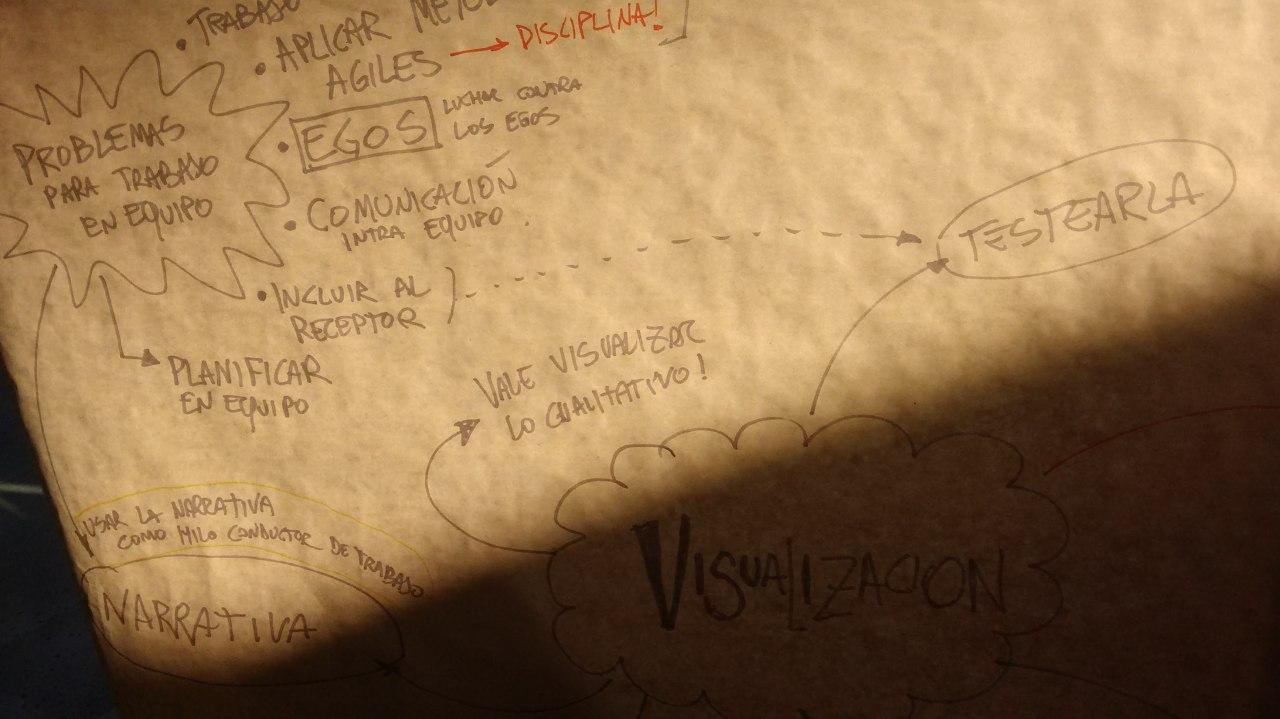 • TRABAJO
• APLICAR
AGILES → DISCIPLINA!
PROBLEMAS
PARA TRABAJO
EN EQUIPO
• EGOS
LUCHAR CONTRA
LOS EGOS
• COMUNICACIÓN
INTRA EQUIPO.
• INCLUIR AL
RECEPTOR
TESTEARLA
PLANIFICAR
EN EQUIPO
VALE VISUALIZAR
LO CUALITATIVO!
USAR LA NARRATIVA
COMO HILO CONDUCTOR DE TRABAJO
NARRATIVA
VISUALIZACION